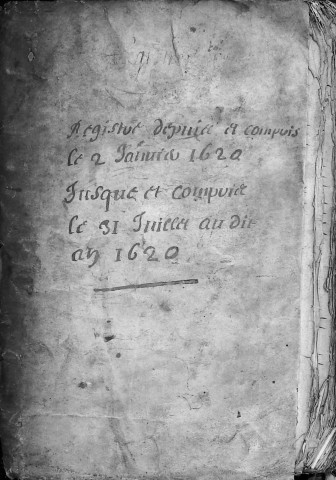 Registre depuis et compris
le 2 Janvier 1620
Jusque et compris
le 31 Juillet au dit
an 1620